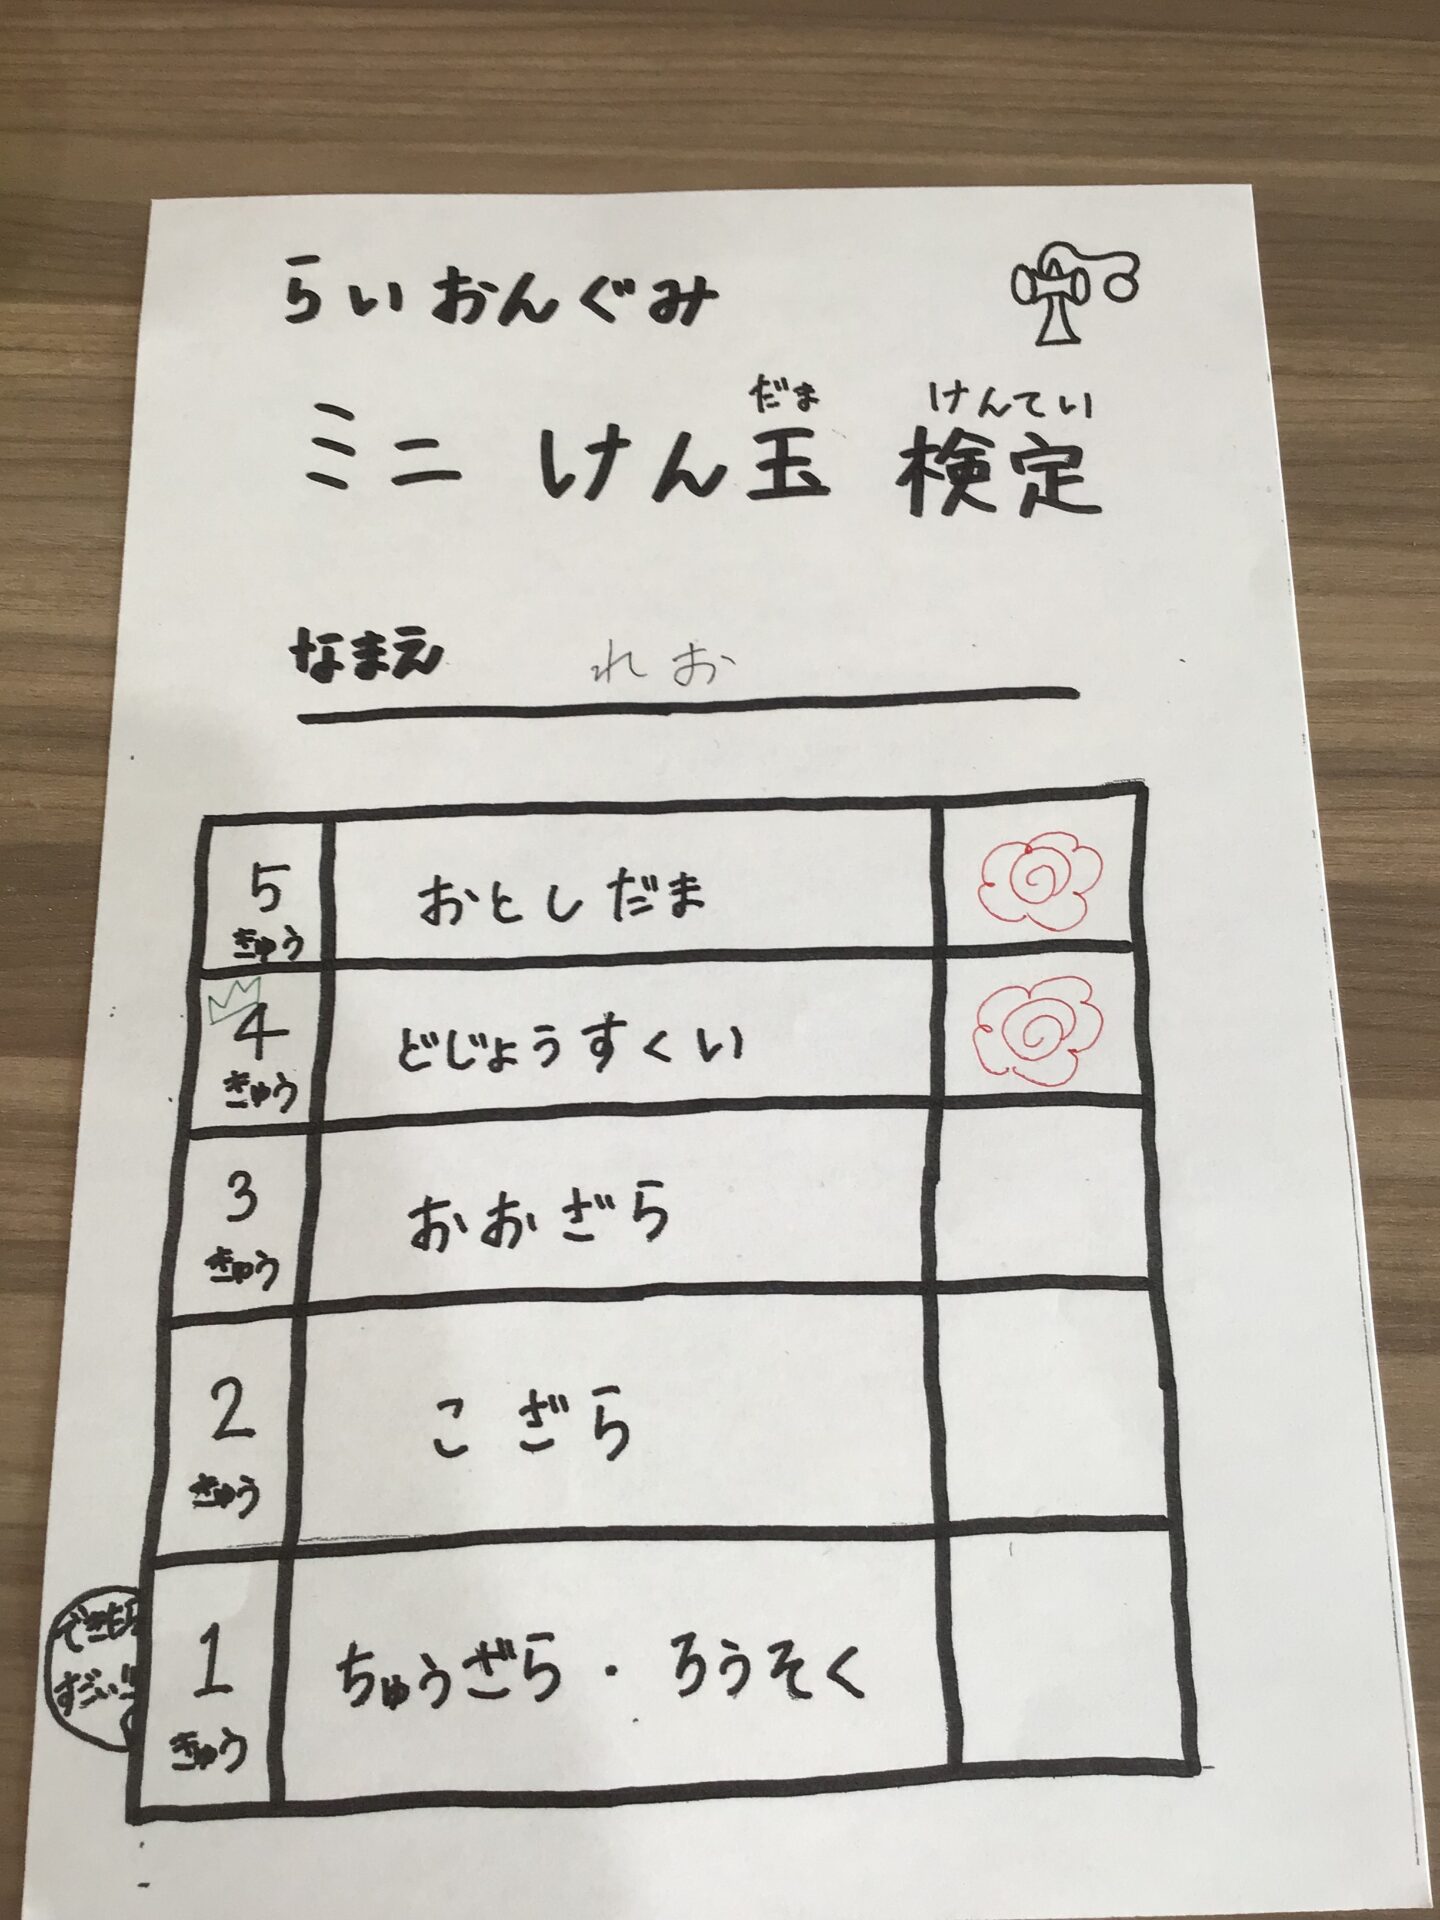 らいおんぐみ
だま けんてい
ミニ けん玉 検定
なまえ れお
5 きゅう おとしだま
4 きゅう どじょうすくい
3 きゅう おおざら
2 きゅう こざら
1 きゅう ちゅうざら・ろうそく
できたら
すごい!!